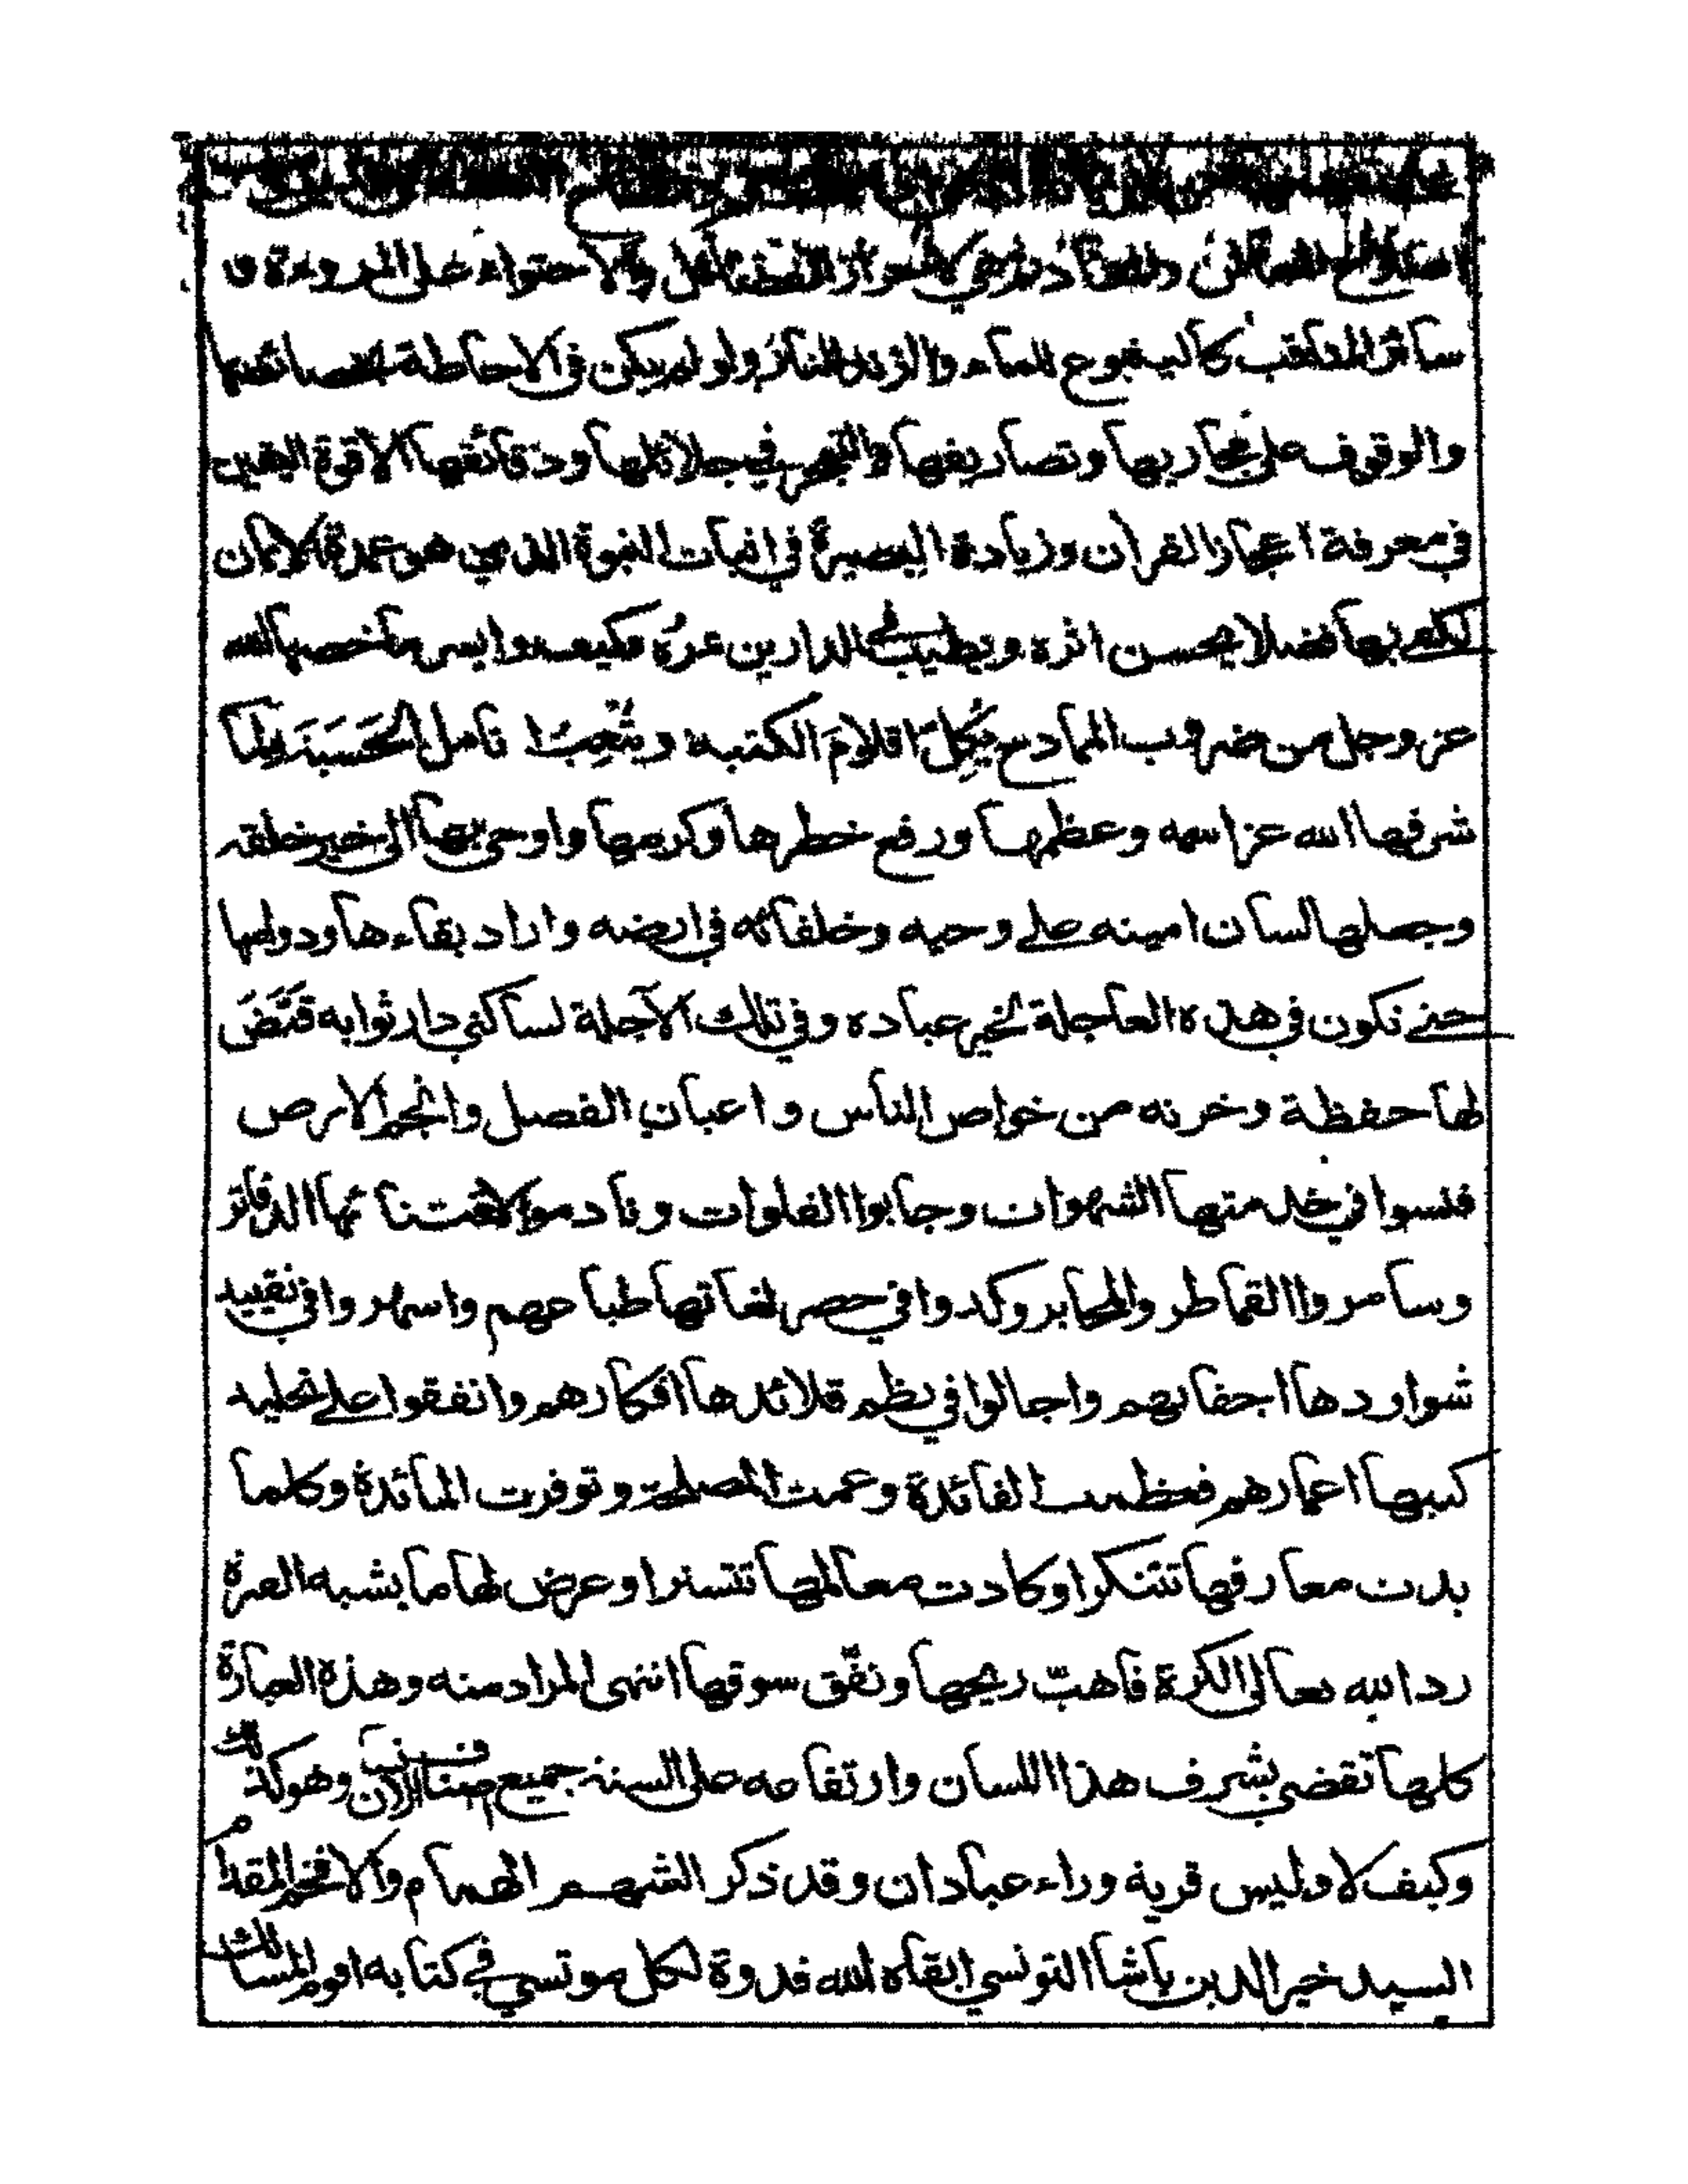 والاحتواء على المروءة و
سائر المناقب كالينبوع للماء والزند للنار ولو لم يكن في الاحاطة بخصائصها
والوقوف على مجاريها وتصاريفها والتبحر في جلائلها ودقائقها الا قوة اليقين
في معرفة اعجاز القرآن وزيادة البصيرة في اثبات النبوة الذي هو عمدة الايمان
لكفى بها فضلا يحسن اثره ويطيب في الدارين وايسر ما خصها الله
عز وجل من ضروب الممادح يُكِلّ اقلامَ الكتبه ويُتْعِبُ انامل الحَسَبَة ولما
شرفها الله عز اسمه وعظمها ورفع خطرها وكرمها واوحى بها الى خير خلقه
وجعلها لسان امينه على وحيه وخلفائه في ارضه واراد بقاءها ودوامها
حتى تكون في هذه العاجلة لخير عباده وفي تلك الآجلة لساكني دار ثوابه قَيَّضَ
لها حفظة وخزنه من خواص الناس واعيان الفضل وانجم الارض
فنسوا في خدمتها الشهوات وجابوا الفلوات ونادموا لاقتنائها الدفاتر
وسامروا القماطر والمحابر وكدوا في حصر لغاتها طباعهم واسهروا في تقييد
شواردها اجفانهم واجالوا في نظم قلائدها افكارهم وانفقوا على تخليد
كتبها اعمارهم فعظمت الفائدة وعمت المصلحة وتوفرت المائدة وكلما
بدت معارفها تتنكر او كادت معالمها تتستر او عرض لها ما يشبه الفترة
رد الله تعالى الكرة فاهبّ ريحها ونفّق سوقها انتهى المراد منه وهذه العبارة
كلها تقضي بشرف هذا اللسان وارتفاعه على السنة جميع وهو كذلك
وكيف لا وليس قرية وراء عبادان وقد ذكر الشهم الهمام والافخم المقدام
السيد خير الدين باشا التونسي ابقاه الله قدوة لكل موتسي في كتابه اقوم المسالك